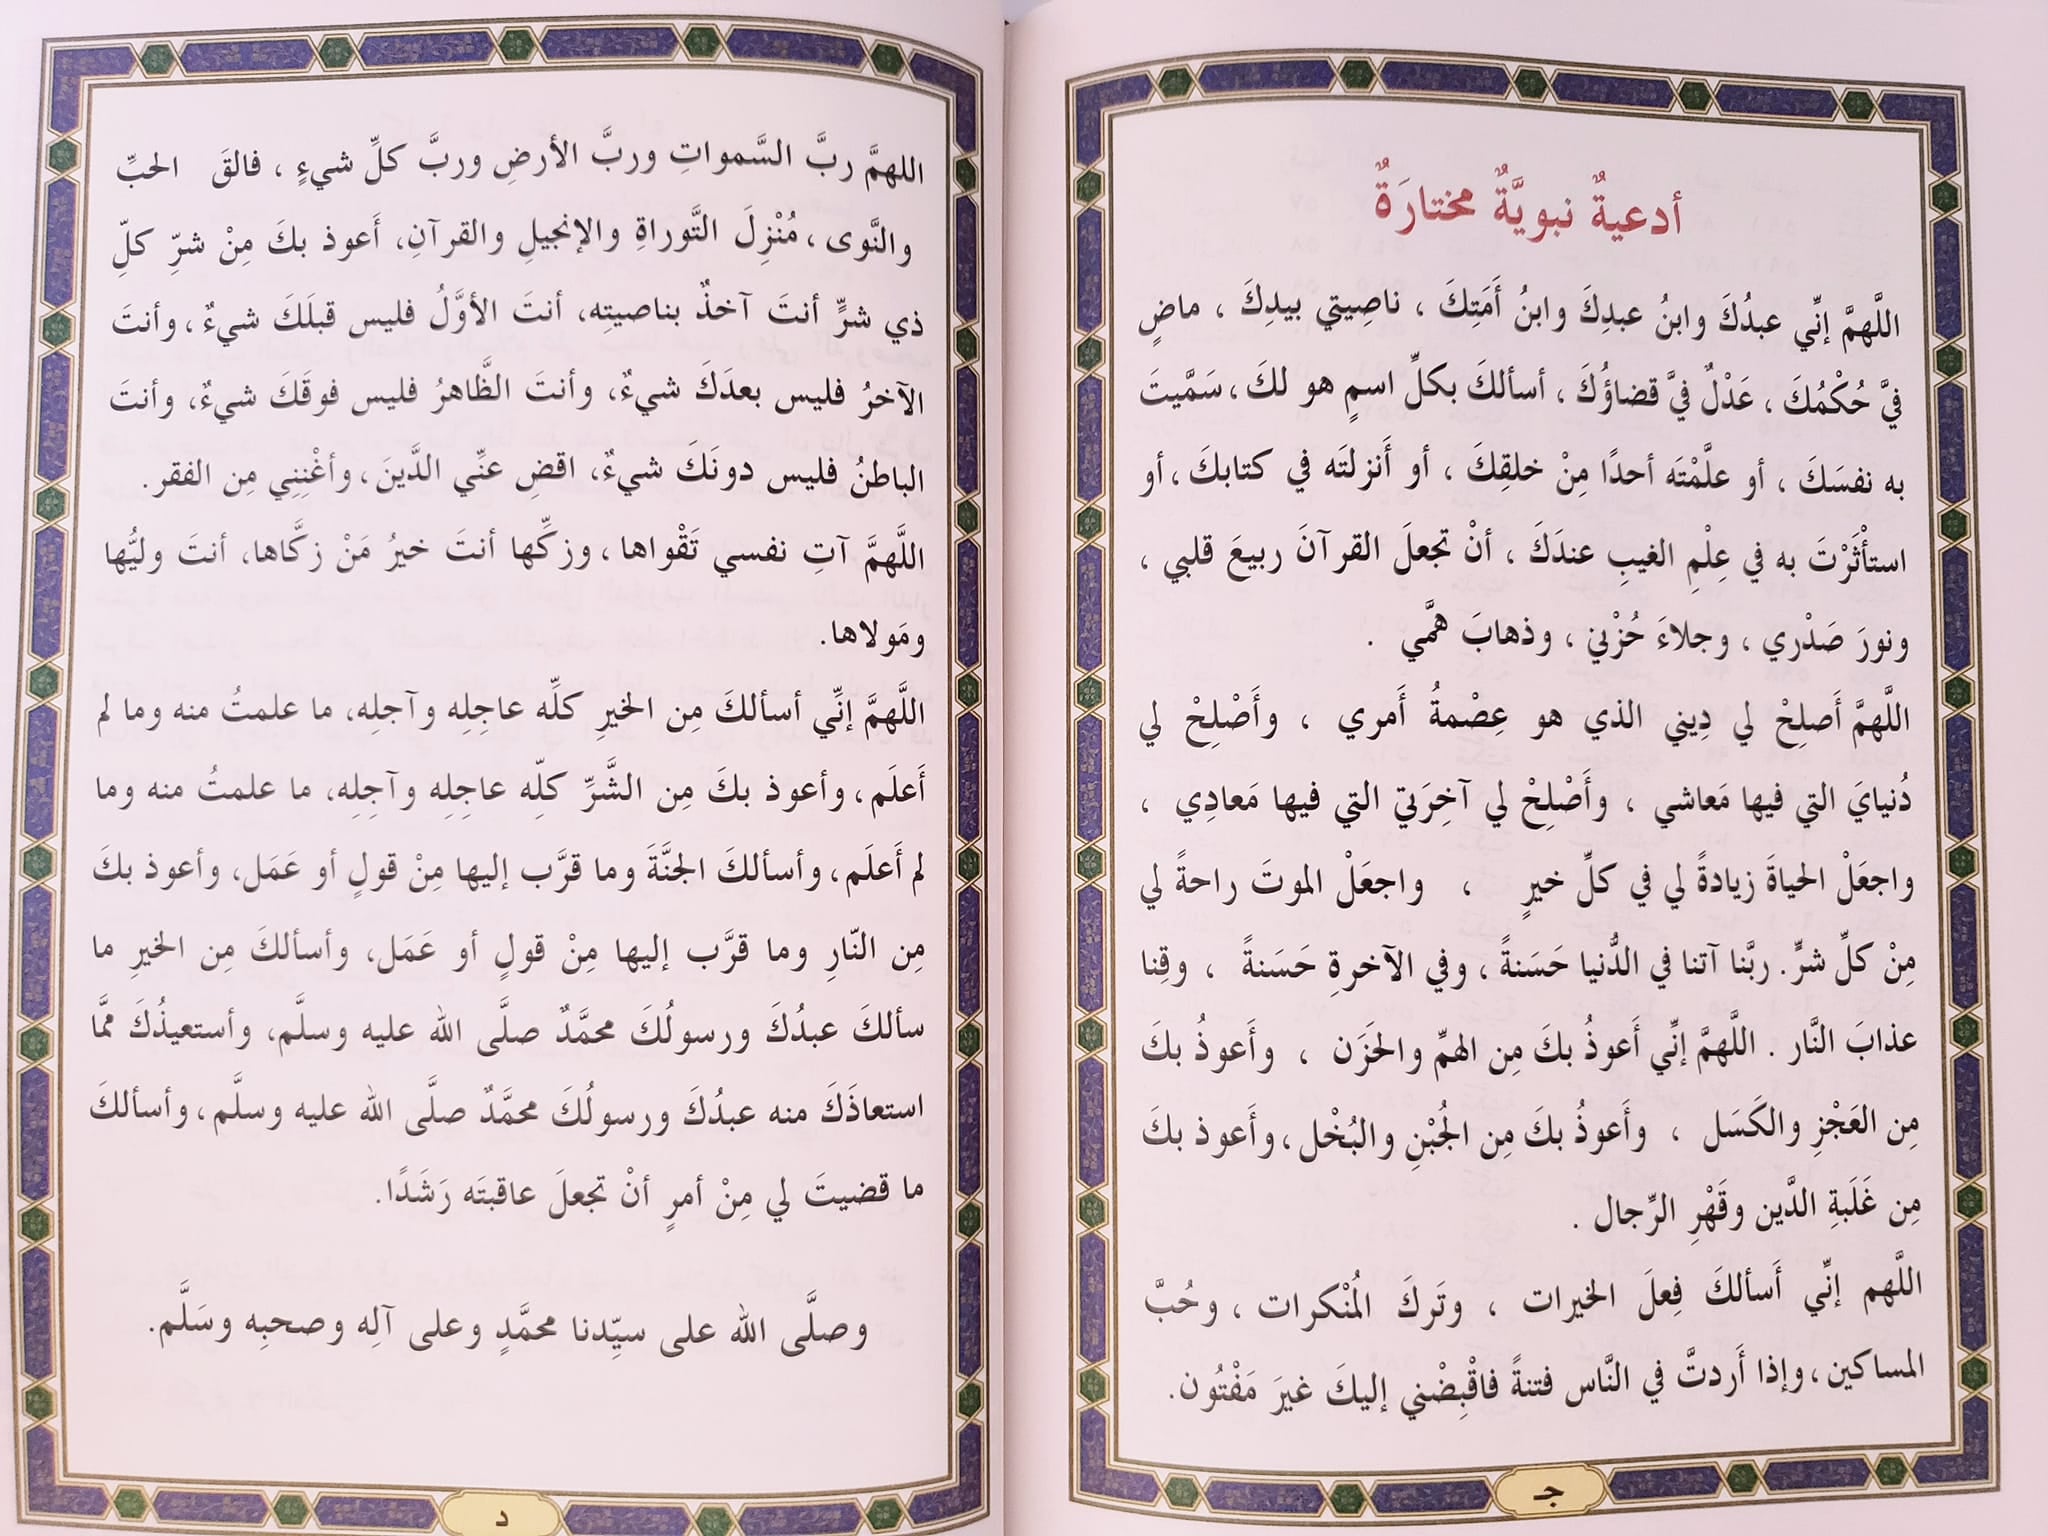 أدعيةٌ نبويَّةٌ مختارَةٌ
اللَّهمَّ إنِّي عبدُكَ وابنُ عبدِكَ وابنُ أَمَتِكَ ، ناصِيتي بيدِكَ ، ماضٍ
فيَّ حُكْمُكَ ، عَدْلٌ فيَّ قضاؤُكَ ، أسألكَ بكلِّ اسمٍ هو لكَ ، سَمَّيتَ
به نفسَكَ ، أو علَّمْتَه أحدًا مِنْ خلقِكَ ، أو أَنزلتَه في كتابكَ ، أو
استأْثَرْتَ به في عِلْمِ الغيبِ عندَكَ ، أنْ تجعلَ القرآنَ ربيعَ قلبي ،
ونورَ صَدْري ، وجلاءَ حُزْني ، وذهابَ همَّي .
اللَّهمَّ أَصلِحْ لي دِيني الذي هو عِصْمةُ أَمري ، وأَصْلِحْ لي
دُنيايَ التي فيها مَعاشي ، وأَصْلِحْ لي آخِرَتيَ التي فيها مَعادِي ،
واجعَلْ الحياةَ زيادةً لي في كلِّ خيرٍ ، واجعَلْ الموتَ راحةً لي
مِنْ كلِّ شرٍّ. ربَّنا آتنا في الدُّنيا حَسَنةً ، وفي الآخرةِ حَسَنةً ، وقِنا
عذابَ النَّار . اللَّهمَّ إنِّي أَعوذُ بكَ مِن الهمِّ والحَزَن ، وأَعوذُ بكَ
مِن العَجْزِ والكَسَل ، وأَعوذُ بكَ مِن الجُبْنِ والبُخْل ، وأَعوذ بكَ
مِن غَلَبةِ الدَّين وقَهْرِ الرِّجال .
اللَّهم إنِّي أَسألكَ فِعلَ الخيرات ، وتَركَ المُنْكرات ، وحُبَّ
المساكين ، وإذا أَردتَّ في النَّاس فتنةً فاقْبِضْني إليكَ غيرَ مَفْتُون.
جـ
اللهمَّ ربَّ السَّمواتِ وربَّ الأرضِ وربَّ كلِّ شيءٍ ، فالقَ الحبِّ
والنَّوى ، مُنْزِلَ التَّوراةِ والإنجيلِ والقرآنِ، أَعوذ بكَ مِنْ شرِّ كلِّ
ذي شرٍّ أنتَ آخذٌ بناصيتِه، أنتَ الأوَّلُ فليس قبلَكَ شيءٌ ، وأنتَ
الآخرُ فليس بعدَكَ شيءٌ، وأنتَ الظَّاهرُ فليس فوقَكَ شيءٌ، وأنتَ
الباطنُ فليس دونَكَ شيءٌ، اقضِ عنِّي الدَّينَ ، وأغْنِنِي مِن الفقر.
اللَّهمَّ آتِ نفسي تَقْواها ، وزكِّها أنتَ خيرُ مَنْ زكَّاها، أنتَ وليُّها
ومَولاها.
اللَّهمَّ إنِّي أسألكَ مِن الخيرِ كلِّه عاجِلِه وآجلِه، ما علمتُ منه وما لم
أَعلَم ، وأعوذ بكَ مِن الشَّرِّ كلِّه عاجِلِه وآجِلِه، ما علمتُ منه وما
لم أَعلَم ، وأسألكَ الجنَّةَ وما قرَّب إليها مِنْ قولٍ أو عَمَل، وأعوذ بكَ
مِن النّارِ وما قرَّب إليها مِنْ قولٍ أو عَمَل، وأسألكَ مِن الخيرِ ما
سألكَ عبدُكَ ورسولُكَ محمَّدٌ صلَّى الله عليه وسلَّم، وأستعيذُكَ ممَّا
استعاذَكَ منه عبدُكَ ورسولُكَ محمَّدٌ صلَّى الله عليه وسلَّم ، وأسألكَ
ما قضيتَ لي مِنْ أمرٍ أنْ تجعلَ عاقبتَه رَشَدًا.
وصلَّى الله على سيِّدنا محمَّدٍ وعلى آلِه وصحبِه وسَلَّم.
د